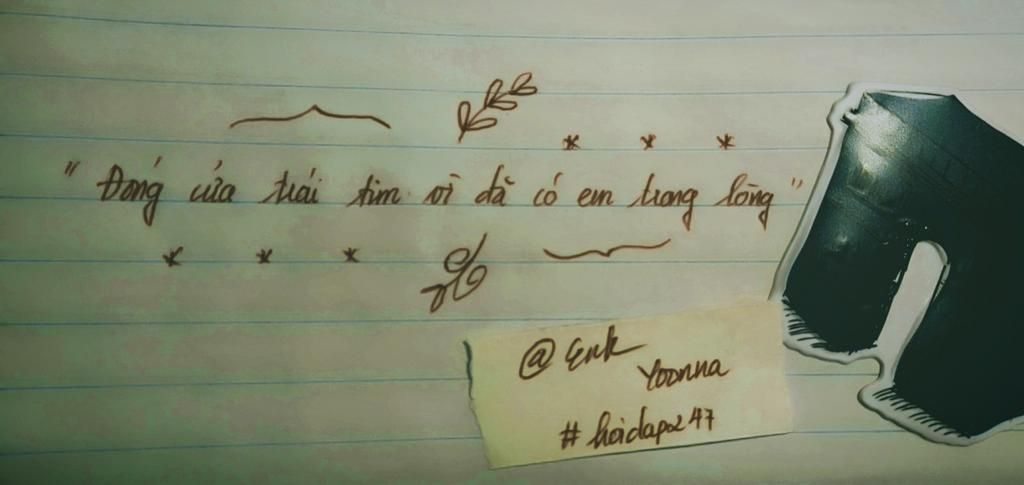 "Đóng cửa trái tim vì đã có em trong lòng"
@ Enk
Yoonna
# hoidap247